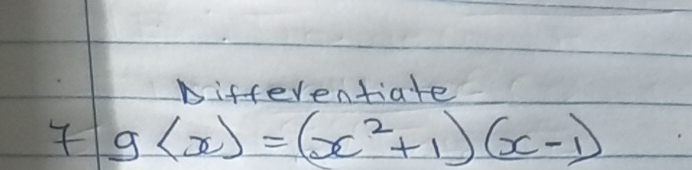 Differentiate
7 g(x) = (x²+1)(x-1)